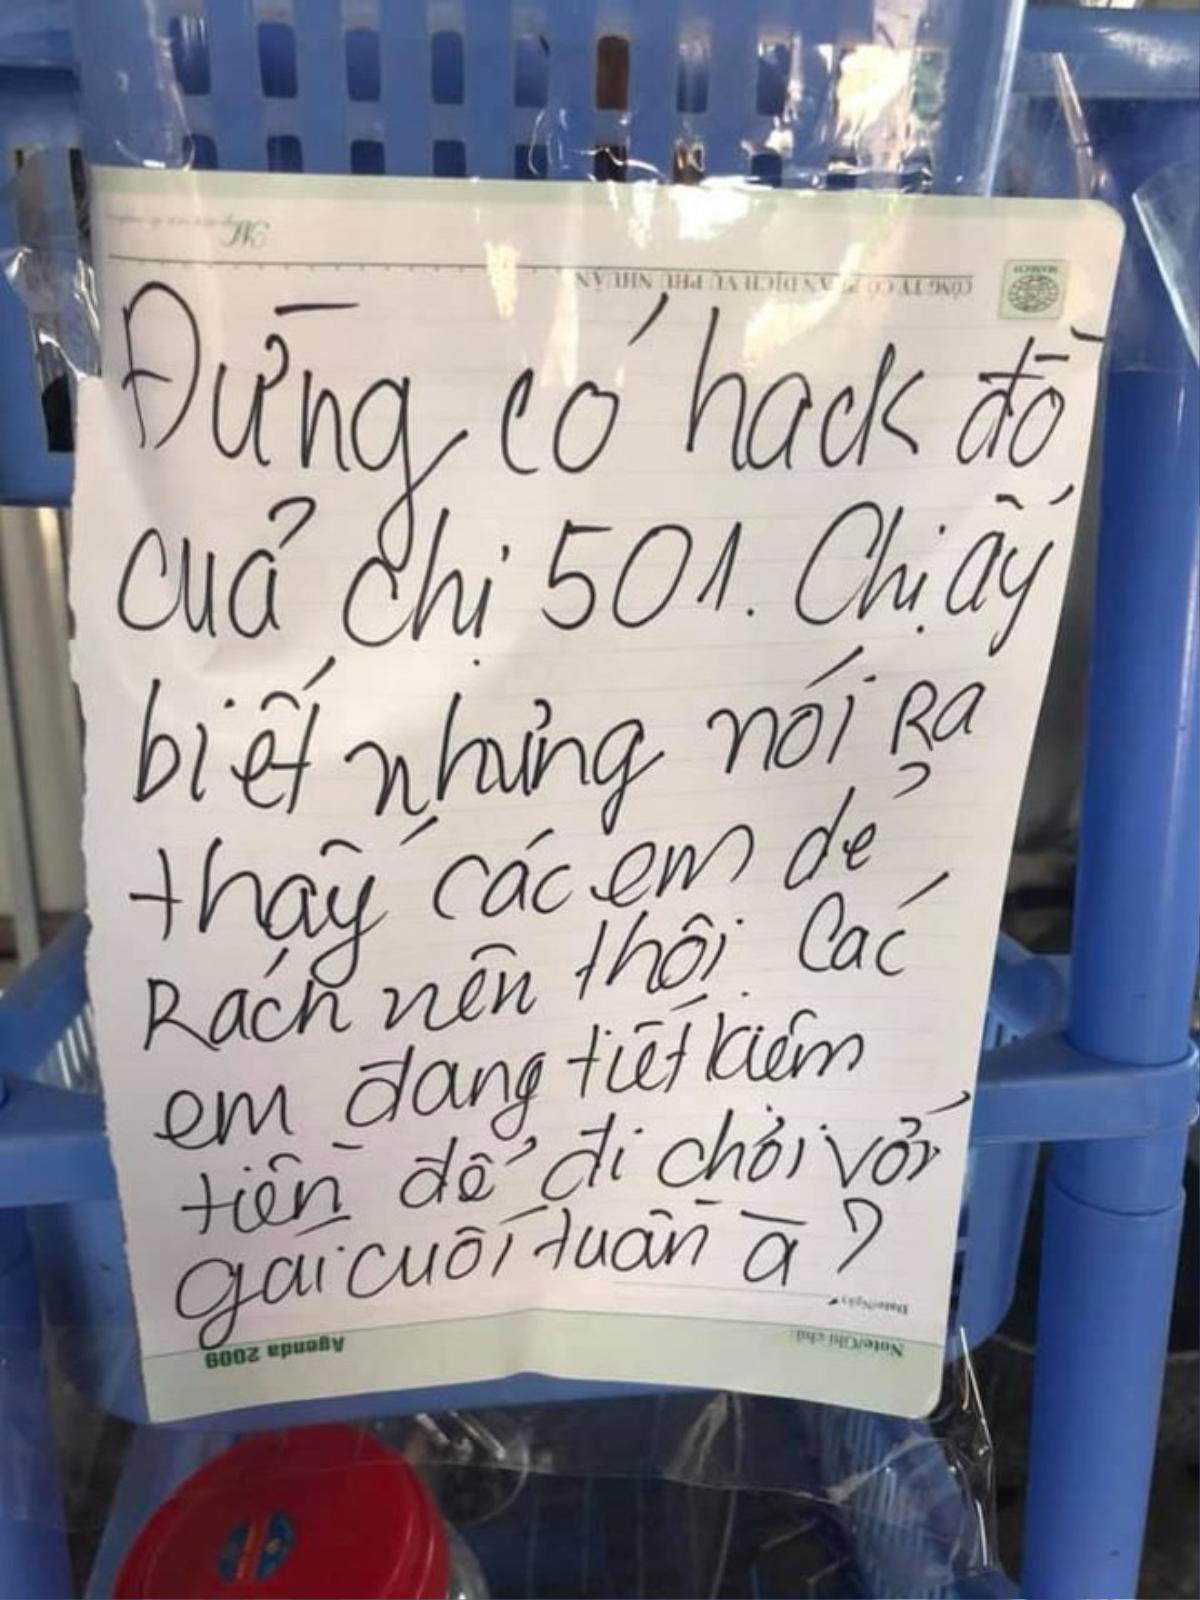 CÔNG TY CỔ PHẦN DỊCH VỤ PHÚ NHUẬN
MASECO
Đừng có hack đồ
của chị 501. Chị ấy
biết nhưng nói Ra
thấy các em dẻ
Rách nên thôi. Các
em đang tiết kiệm
tiền để đi chơi với
gái cuối tuần à?
Date/Ngày
Note/Ghi chú:
Agenda 2009